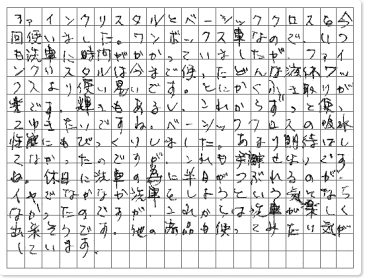 ファインクリスタルとベーシッククロスを今
回使いました。ワンボックス車なので、いつ
も洗車に時間がかかっていましたが、ファイ
ンクリスタルは今まで使ったどんな液体ワッ
クスより使い易いです。とにかくふき取りが
楽です。輝きもあるし、これからずっと使っ
てゆきたいですね。ベーシッククロスの吸水
性能にもびっくりしました。あまり期待はし
てなかったのですが、これも手放せないです
ね。休日に洗車の為に半日がつぶれるのが
イヤでなかなか洗車をしようという気になら
なかったのですが、これからは洗車が楽しく
出来そうです。他の商品も使ってみたい気が
しています。